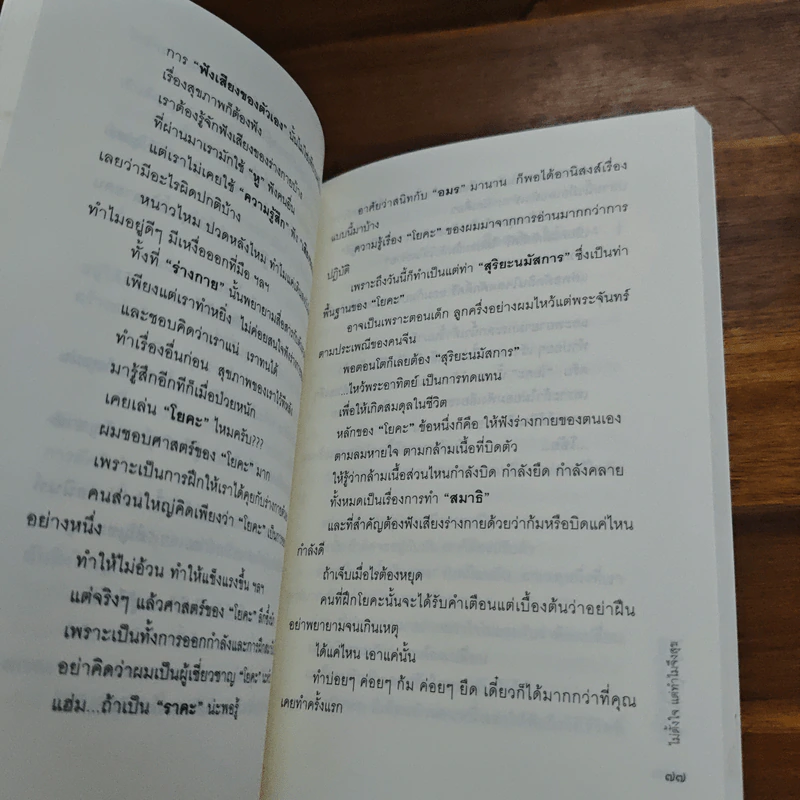 การ “ฟังเสียงของตัวเอง”
เรื่องสุขภาพก็ต้องฟัง
เราต้องรู้จักฟังเสียงของร่างกายบ้าง
ที่ผ่านมาเรามักใช้ “หู” ฟังคนอื่น
แต่เราไม่เคยใช้ “ความรู้สึก” ฟัง
เลยว่ามีอะไรผิดปกติบ้าง
หนาวไหม ปวดหลังไหม ทำไม
ทำไมอยู่ดีๆ มีเหงื่อออกที่มือ ฯลฯ
ทั้งที่ “ร่างกาย” นั้นพยายามสื่อสาร
เพียงแต่เราทำหยิ่ง ไม่ค่อยสนใจฟัง
และชอบคิดว่าเราแน่ เราทนได้
ทำเรื่องอื่นก่อน สุขภาพของเราไว้ทีหลัง
มารู้สึกอีกทีก็เมื่อป่วยหนัก
เคยเล่น “โยคะ” ไหมครับ???
ผมชอบศาสตร์ของ “โยคะ” มาก
เพราะเป็นการฝึกให้เราได้คุยกับร่างกาย
คนส่วนใหญ่คิดเพียงว่า “โยคะ” เป็นการ
อย่างหนึ่ง
ทำให้ไม่อ้วน ทำให้แข็งแรงขึ้น ฯลฯ
แต่จริงๆ แล้วศาสตร์ของ “โยคะ” ลึกซึ้ง
เพราะเป็นทั้งการออกกำลังและการฝึก
อย่าคิดว่าผมเป็นผู้เชี่ยวชาญ “โยคะ”
แฮ่ม...ถ้าเป็น “ราคะ” น่ะพอรู้
อาศัยว่าสนิทกับ “อมร” มานาน ก็พอได้อานิสงส์เรื่อง
แบบนี้มาบ้าง
ความรู้เรื่อง “โยคะ” ของผมมาจากการอ่านมากกว่าการ
ปฏิบัติ
เพราะถึงวันนี้ก็ทำเป็นแต่ท่า “สุริยะนมัสการ” ซึ่งเป็นท่า
พื้นฐานของ “โยคะ”
อาจเป็นเพราะตอนเด็ก ลูกครึ่งอย่างผมไหว้แต่พระจันทร์
ตามประเพณีของคนจีน
พอตอนโตก็เลยต้อง “สุริยะนมัสการ”
...ไหว้พระอาทิตย์ เป็นการทดแทน
เพื่อให้เกิดสมดุลในชีวิต
หลักของ “โยคะ” ข้อหนึ่งก็คือ ให้ฟังร่างกายของตนเอง
ตามลมหายใจ ตามกล้ามเนื้อที่บิดตัว
ให้รู้ว่ากล้ามเนื้อส่วนไหนกำลังบิด กำลังยืด กำลังคลาย
ทั้งหมดเป็นเรื่องการทำ “สมาธิ”
และที่สำคัญต้องฟังเสียงร่างกายด้วยว่าก้มหรือบิดแค่ไหน
กำลังดี
ถ้าเจ็บเมื่อไรต้องหยุด
คนที่ฝึกโยคะนั้นจะได้รับคำเตือนแต่เบื้องต้นว่าอย่าฝืน
อย่าพยายามจนเกินเหตุ
ได้แค่ไหน เอาแค่นั้น
ทำบ่อยๆ ค่อยๆ ก้ม ค่อยๆ ยืด เดี๋ยวก็ได้มากกว่าที่คุณ
เคยทำครั้งแรก
ไม่ตั้งใจ แต่ทำไมจึงสุข
๗๗